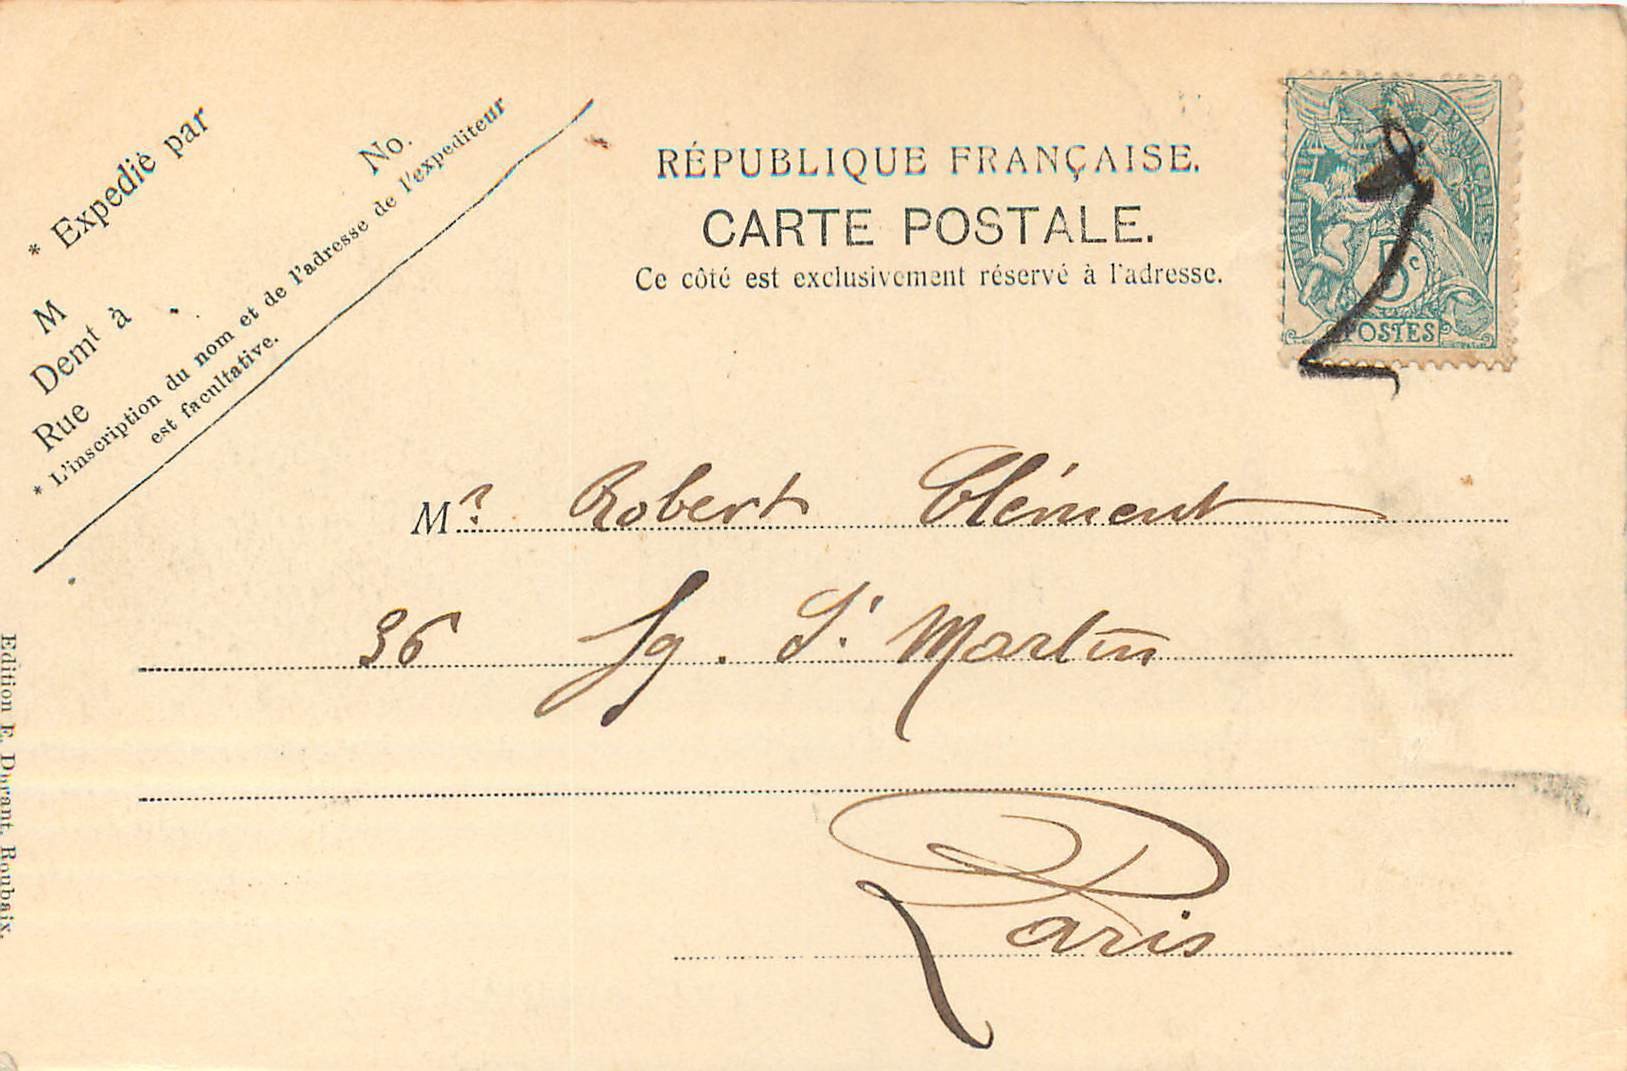 * Expedié par
No.
M
Demt à
Rue
* L'inscription du nom et de l'adresse de l'expediteur
est facultative.
RÉPUBLIQUE FRANÇAISE.
CARTE POSTALE.
Ce côté est exclusivement réservé à l'adresse.
RÉPUBLIQUE FRANÇAISE
5c
POSTES
Mr Robert Clément
36 fg. St Martin
Paris
Edition E. Durant, Roubaix.